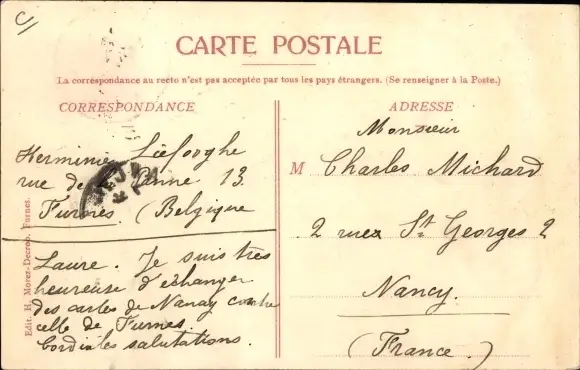 C/
CARTE POSTALE
La correspondance au recto n'est pas acceptée par tous les pays étrangers. (Se renseigner à la Poste.)
CORRESPONDANCE
Herminie
rue de 13.
Furnes (Belgique
Laure. Je suis très
heureuse d'échanger
des cartes de Nancy contre
celle de Furnes.
Cordiales salutations.
Edit. H. Morez-Decroo, Furnes.
ADRESSE
Monsieur
M Charles Michard
2 rue St Georges 2
Nancy.
(France.)